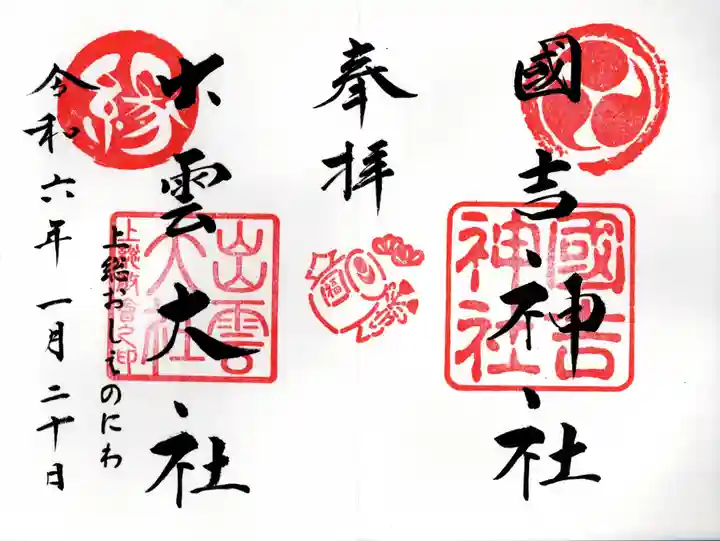 國吉神社
國吉
神社
奉拝
福
出雲大社
縁
出雲
大社
上総教會之印
上総おしえのにわ
令和六年一月二十日